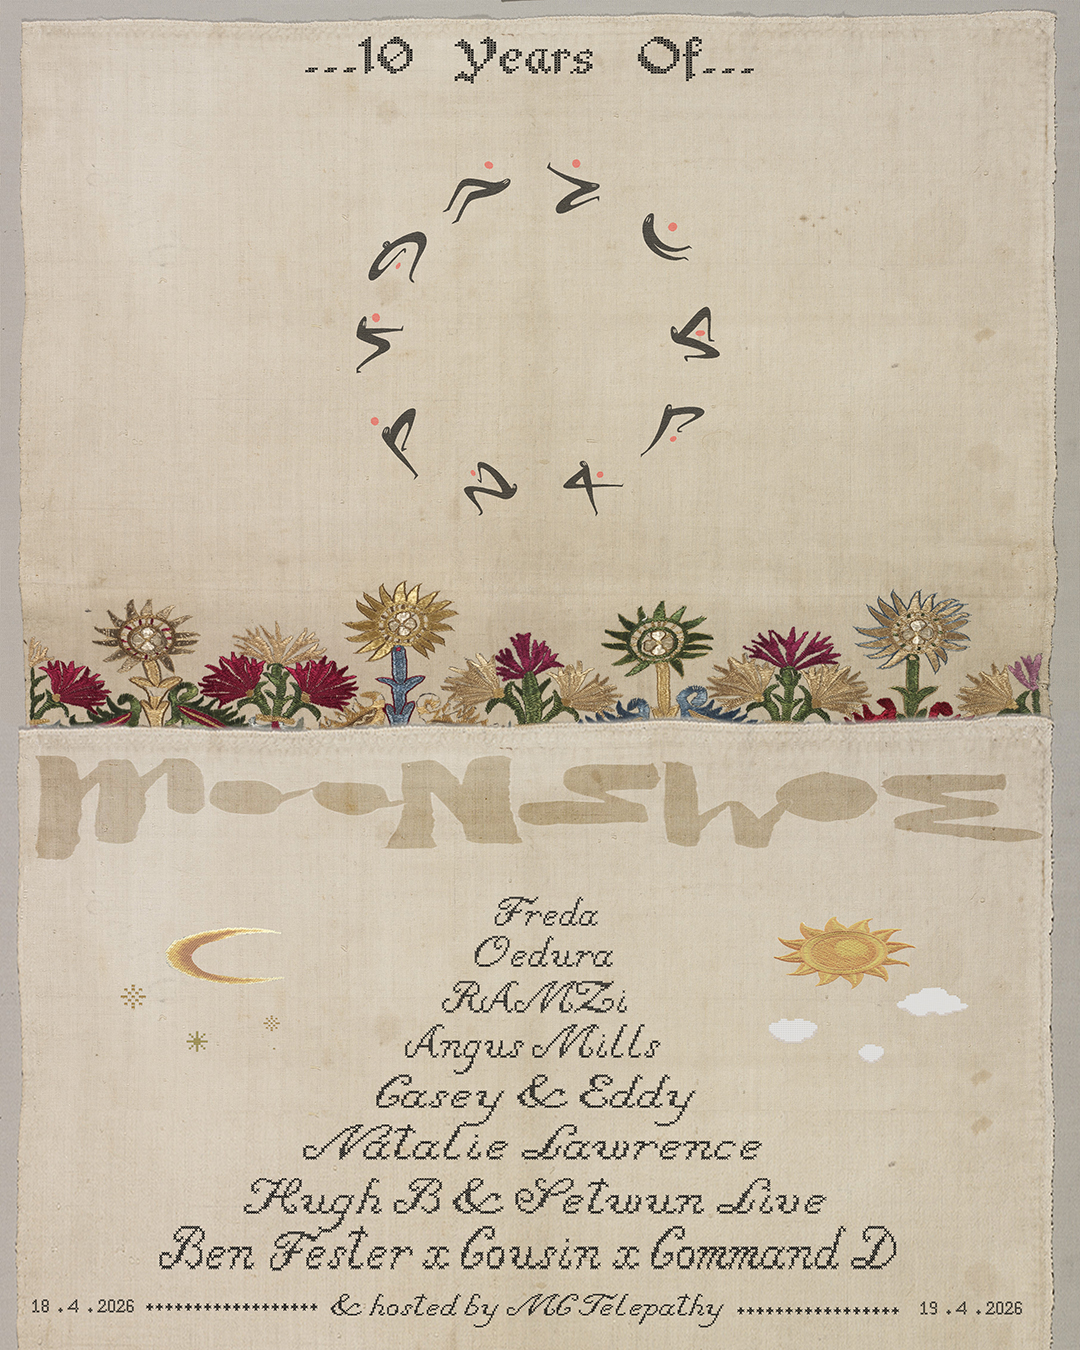 ...10 Years Of...
MOONSHOE
Freda
Oedura
RAMZi
Angus Mills
Casey & Eddy
Natalie Lawrence
Hugh B & Setwun Live
Ben Fester x Cousin x Command D
18.4.2026 & hosted by MC Telepathy 19.4.2026